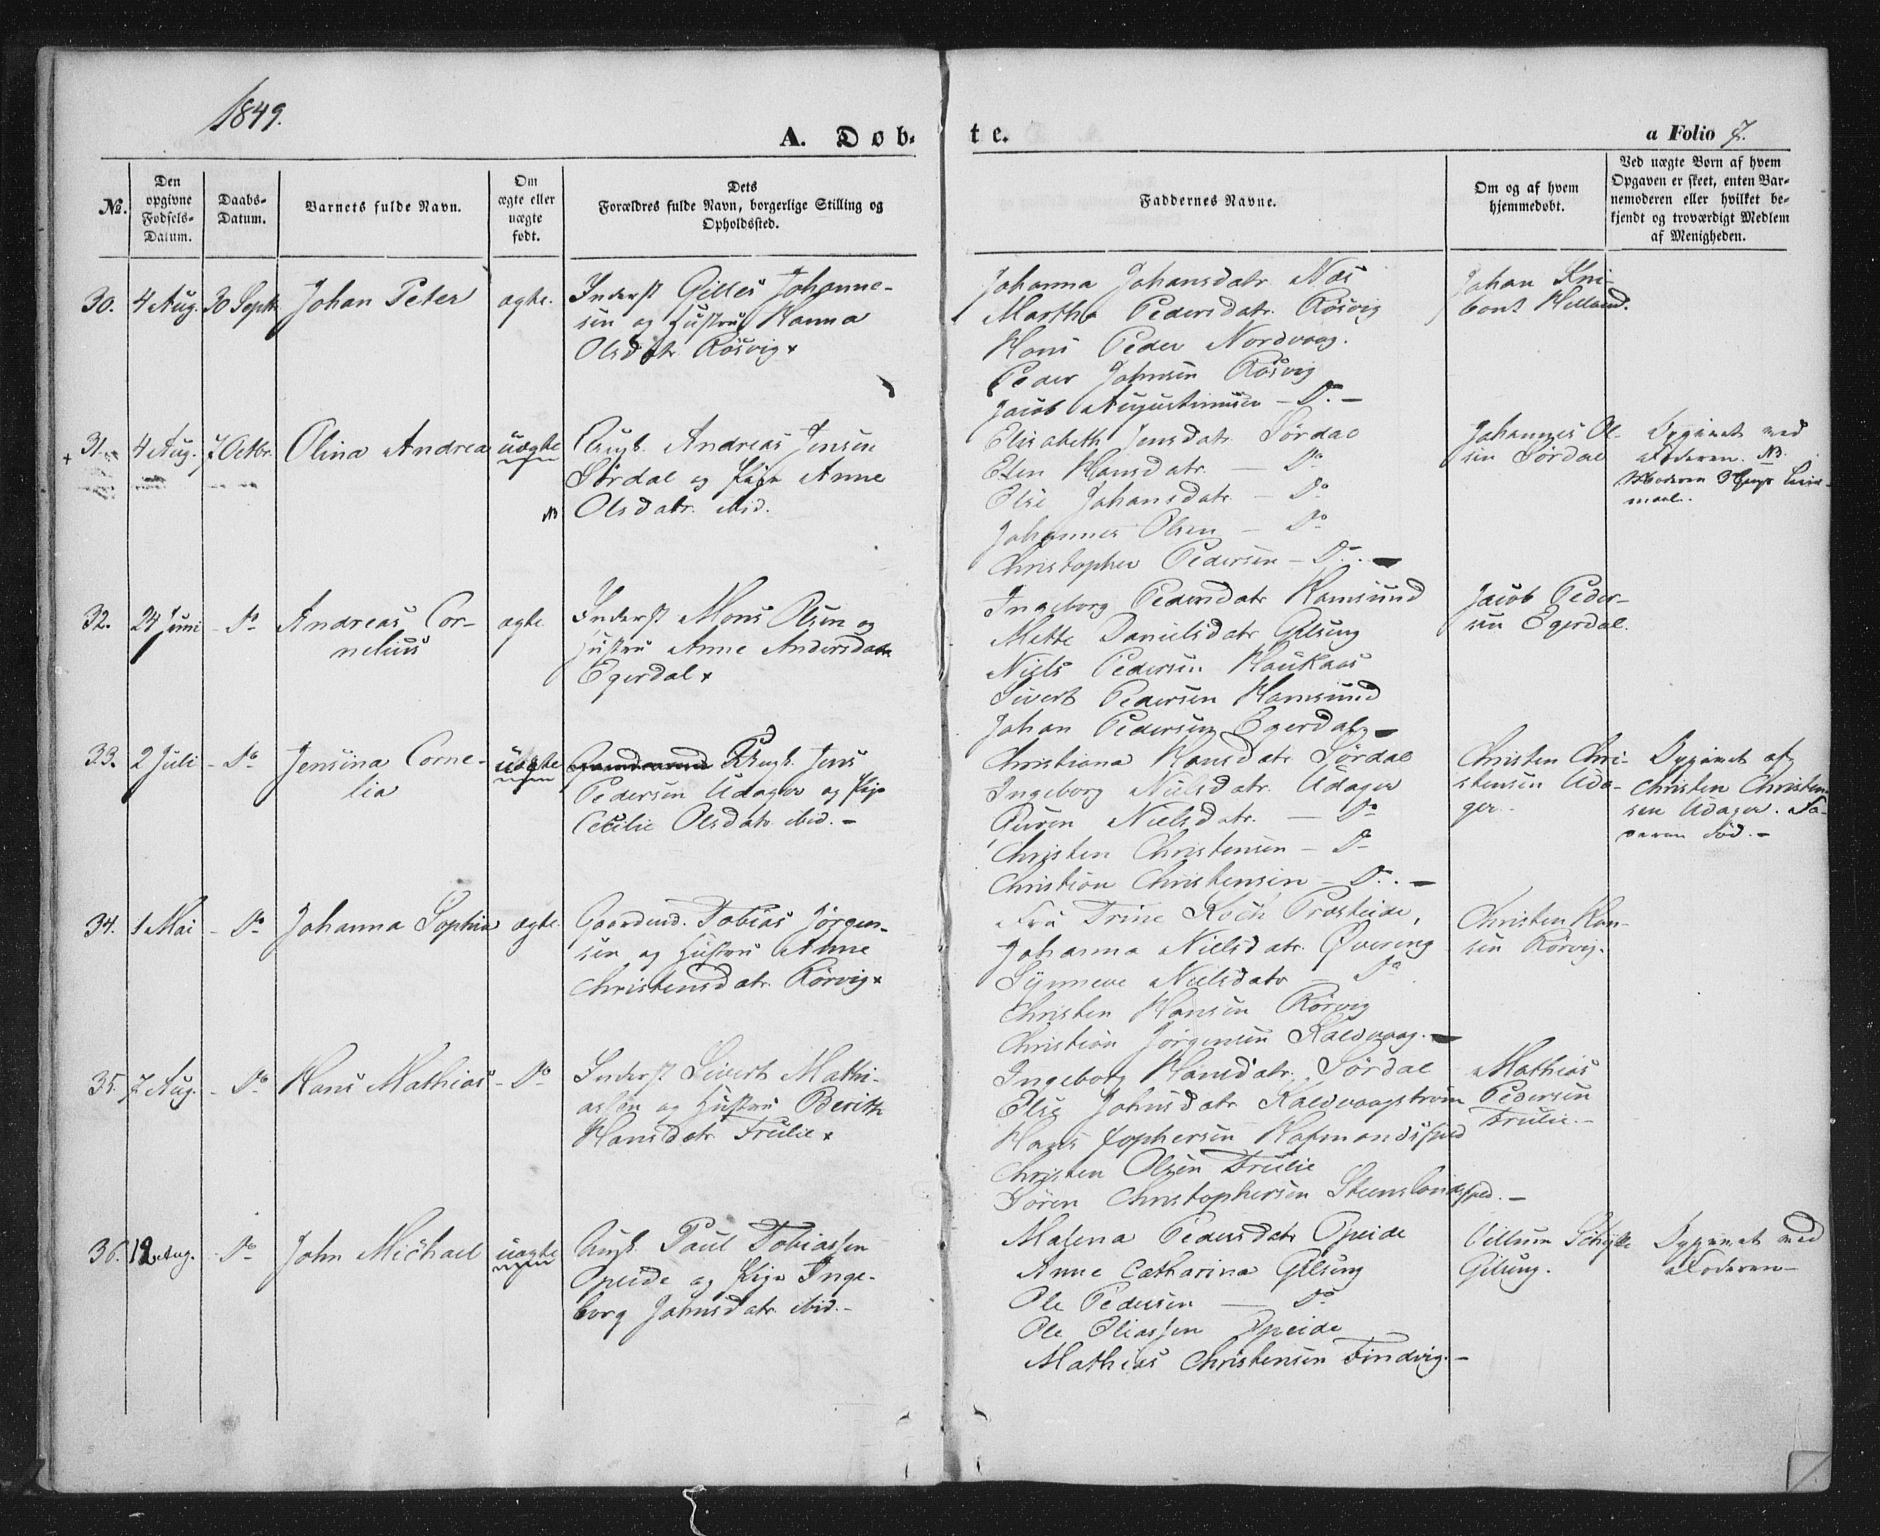 1849.
A. Døb-
te.
a Folio 7.
No.
Den
opgivne
Fødsels-
Datum.
Daabs-
Datum.
Barnets fulde Navn.
Om
ægte eller
uægte
født.
Dets
Forældres fulde Navn, borgerlige Stilling og
Opholdssted.
Faddernes Navne.
Om og af hvem
hjemmedøbt.
Ved uægte Børn af hvem
Opgaven er skeet, enten Bar-
nemoderen eller hvilket be-
kjendt og troværdigt Medlem
af Menigheden.
30.
4 Aug.
30 Septb
Johan Peter
ægte.
Inderst Gilles Johanne-
sen og Hustru Hanna
Olsdatr Røsvig
Johanna Johansdatr Næs
Martha Pedersdatr. Røsvig
Hans Peder Nordvaag.
Peder Johnsen Røsvig
Jacob Augustinusen - Do. -
Johan
Helland.
31.
4 Aug.
7 Octbr.
Olina Andrea
uægte
Ungk. Andreas Jensen
Sørdal og Pige Anne
Olsdatr. ibid.
NB
Elisabeth Jensdatr. Sørdal
Elen Hansdatr. - Do
Else Johansdatr - Do
Johannes Olsen - Do
Christopher Pedersen - Do. -
Johannes Ol-
sen Sørdal
Opgivet med
Moderen. NB.
Moderen 3die Gangs Leier-
maal.
32.
24 Juni
- Do
Andreas Cor-
nelius
ægte.
Inderst Mons Olsen og
Hustru Anne Andersdatr
Egerdal
Ingeborg Pedersdatr Hamsund
Mette Danielsdatr Gilsung
Niels Pedersen Haukaas
Sivert Pedersen Hamsund
Johan Pedersen Egerdal -
Jacob Peder-
sen Egerdal.
33.
2 Juli
- Do
Jensina Corne-
lia
uægte
Ungk. Jens
Pedersen Udager og Pige
Cecilie Olsdatr ibid. -
Christiana Hansdatr Sørdal
Ingeborg Nielsdatr. Udager
Nielsdatr. - Do
Christen Christensen - Do
Christian Christensen - Do. -
Christen Chri-
stensen Uda-
ger.
Opgivet af
Christen Christen-
sen Udager. Fa-
deren død. -
34.
1 Mai
- Do
Johanna Sophia
ægte.
Gaardmd. Tobias Jørgen-
sen og Hustru Anne
Christensdatr. Rørvig
Fru Trine Koch Presteide,
Johanna Nielsdatr. Qværing
Synneve Nielsdatr - Do
Christen Hansen Rørvig
Christian Jørgensen Kaldvaag. -
Christen Han-
sen Rørvig.
35.
7 Aug.
- Do
Hans Mathias
- Do
Inderst Sivert Mathi-
assen og Hustru Berith
Hansdatr Trulie
Ingeborg Hansdatr. Sørdal
Else Johnsdatr Kaldvaagstrøm
Hans Hafmandsfjeld
Christen Olsen Trulie
Søren Christophersen Steenslandsfjed. -
Mathias
Pedersen
Trulie. -
36.
12 Aug.
- Do
John Michael
uægte
Ungk. Paul Tobiassen
Opeide og Pige Inge-
borg Johnsdatr ibid. -
Malena Pedersdatr Opeide
Anne Catharina Gilsung
Ole Pedersen - Do
Ole Eliassen Opeide
Mathias Christensen Findvig. -
Villum
Gilsung.
Opgivet med
Moderen -